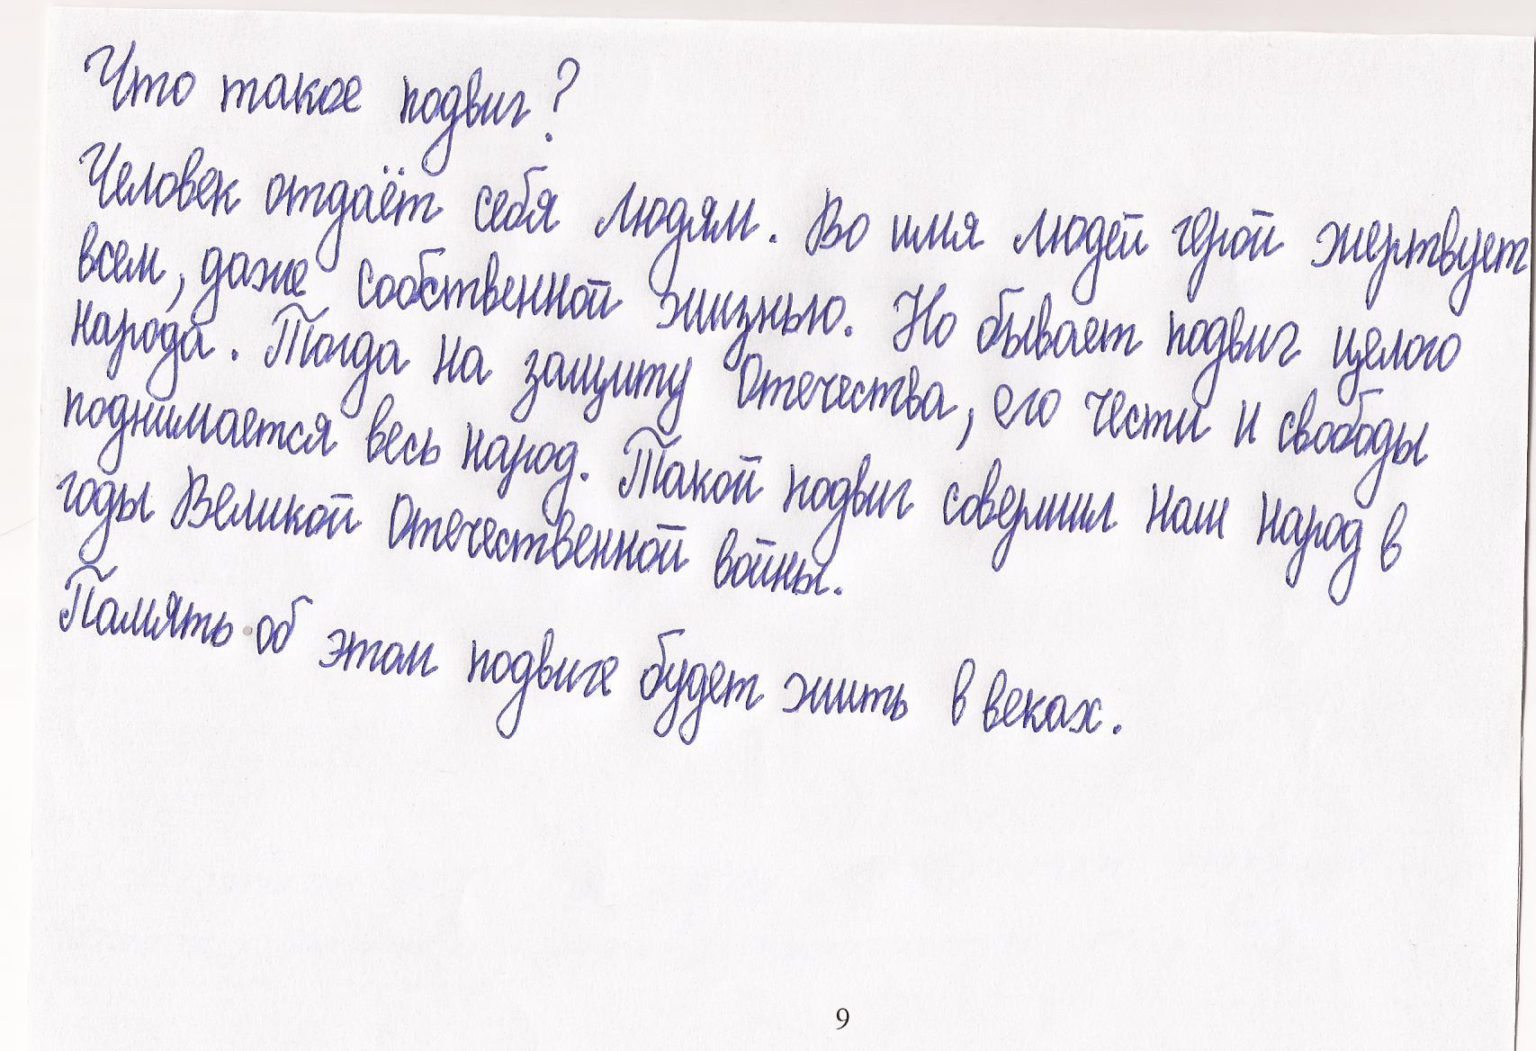 Что такое подвиг?
Человек отдаёт себя людям. Во имя людей герой жертвует
всем, даже собственной жизнью. Но бывает подвиг целого
народа. Тогда на защиту Отечества, его чести и свободы
поднимается весь народ. Такой подвиг совершил наш народ в
годы Великой Отечественной войны.
Память об этом подвиге будет жить в веках.
9